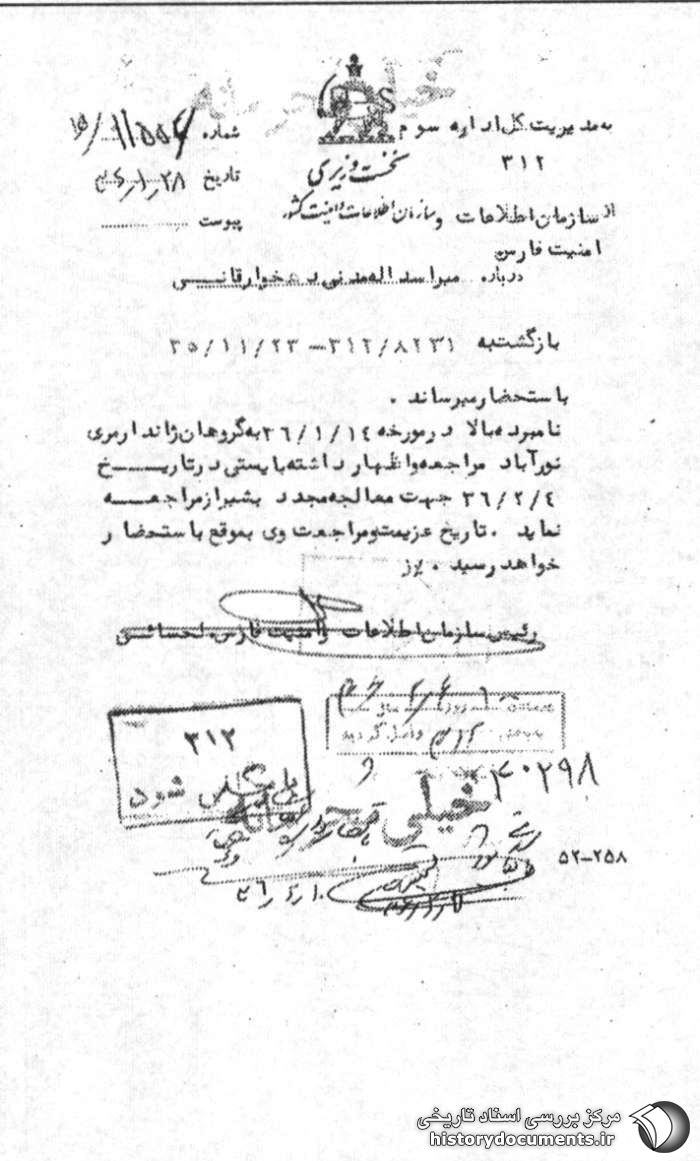 خیلی محرمانه
به مدیریت کل اداره سوم
۳۱۲
نخست وزیری
سازمان اطلاعات و امنیت کشور
شماره ۱۱۵۵۴/۱۵
تاریخ ۳۶/۱/۲۸
پیوست
از سازمان اطلاعات و
امنیت فارس
درباره میراسداله مدنی دهخوارقانی
بازگشت به ۳۱۲/۸۲۳۱–۳۵/۱۱/۲۳
باستحضار میرساند .
نامبرده بالا در مورخه ۳۶/۱/۱۴ به گروهان ژاندارمری
نورآباد مراجعه و اظهار داشته بایستی در تاریخ
۳۶/۲/۴ جهت معالجه مجدد بشیراز مراجعه
نماید . تاریخ عزیمت و مراجعت وی بموقع باستحضار
خواهد رسید .
رئیس سازمان اطلاعات و امنیت فارس
۳۱۲
شود
۴۰۲۹۸
خیلی محرمانه
۵۲–۲۵۸
مرکز بررسی اسناد تاریخی
historydocuments.ir